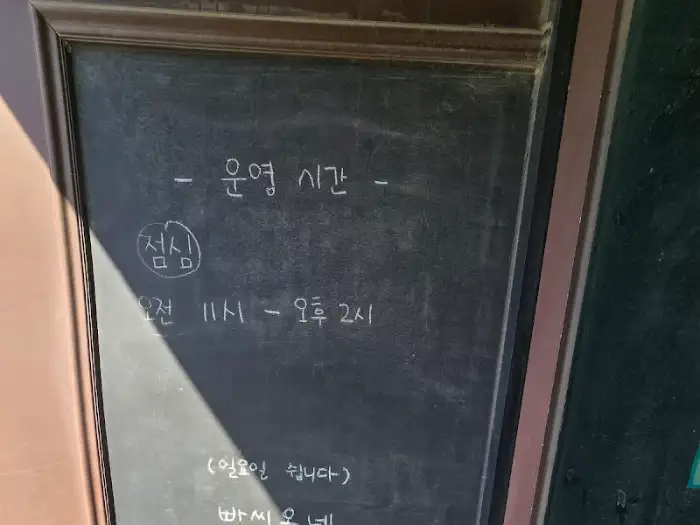 - 운영 시간 -
점심
오전 11시 - 오후 2시
(일요일 쉽니다)
빠씨오네